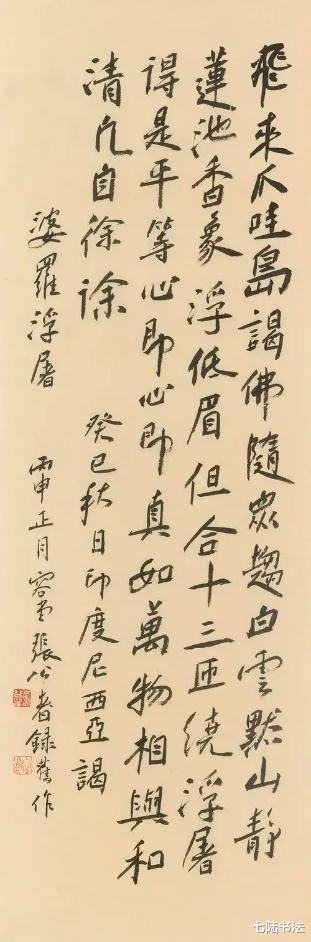 飛來爪哇島謁佛隨眾趨白雲默山靜
蓮池香象浮低眉但合十三匝繞浮屠
得是平等心即心即真如萬物相與和
清風自徐徐 癸巳秋日印度尼西亞謁
婆羅浮屠 丙申正月容堂張公者錄舊作
七陆书法